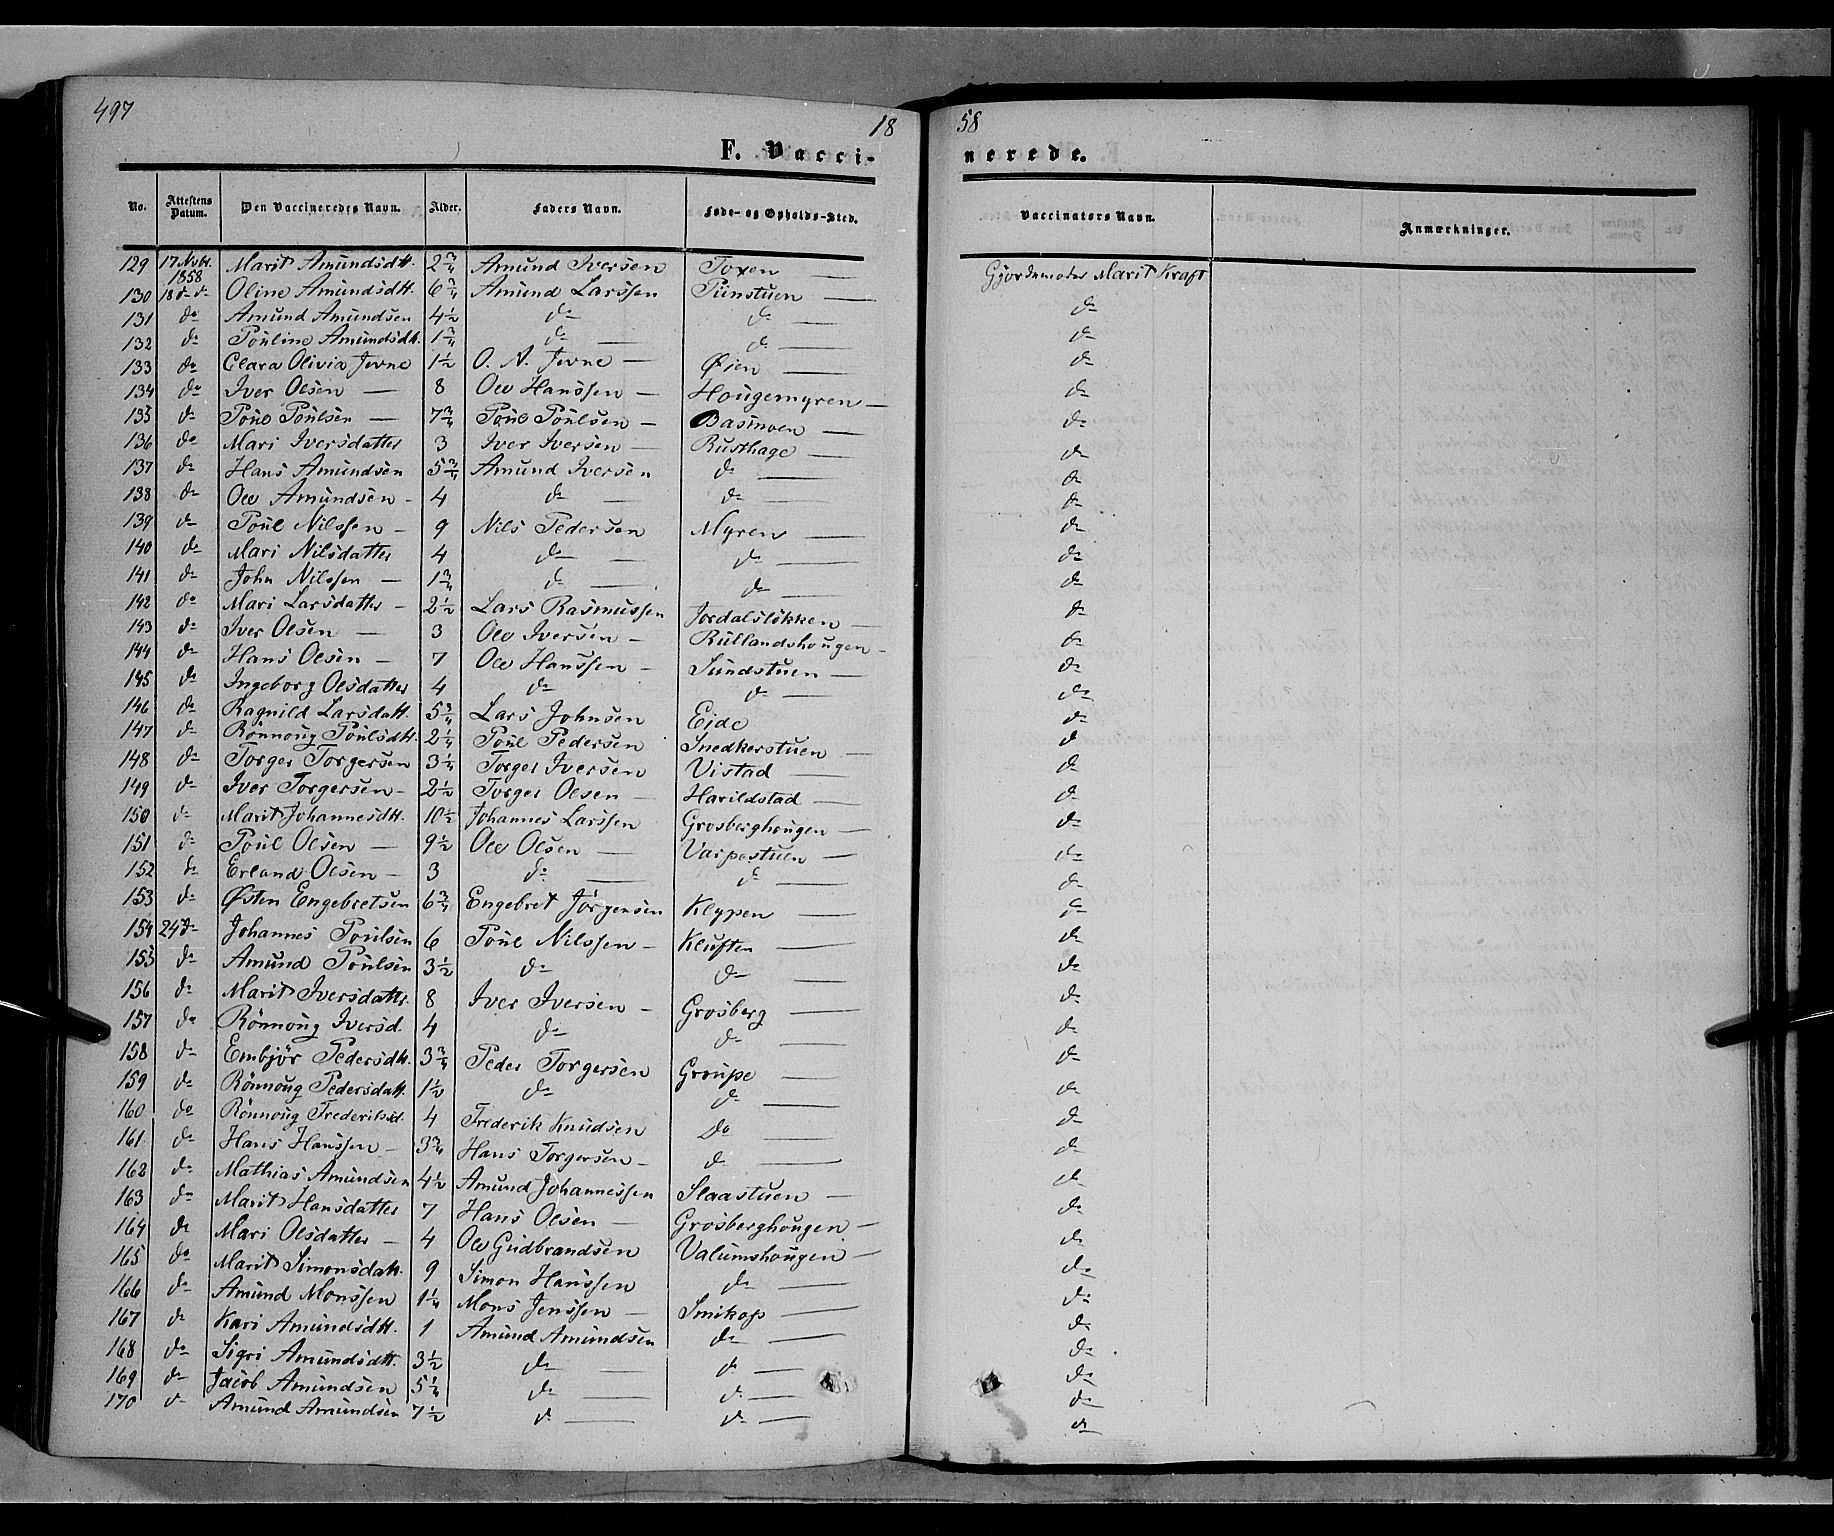 497
18 58
F. Vacci- nerede.
No. Attestens Datum. Den Vaccineredes Navn. Alder. Faders Navn. Føde- og Opholds-Sted. Vaccinators Navn. Anmærkninger.
129 17 Novbr. 1858 Marit Amundsdtt. 2 3/4 Amund Iversen Toxen — Gjordemoder Marit Kraft
130 18 do do Oline Amundsdtt. 6 3/4 Amund Larssen Tünstuen — do
131 do Amund Amundsen 4 1/2 do do — do
132 do Pouline Amundsdtt. 1 3/4 do — do — do
133 do Clara Olivia Jevne 1 1/2 O. A. Jevne — Øien — do
134 do Iver Olsen — 8 Ole Hanssen — Hougemyren — do
135 do Poul Poulsen — 7 3/4 Poul Poulsen — Basmoen — do
136 do Mari Iversdatter 3 Iver Iversen — Rusthage — do
137 do Hans Amundsen 5 3/4 Amund Iversen do — do
138 do Ole Amundsen - 4 do — do — do
139 do Poul Nilssen — 9 Nils Pedersen Myren — do
140 do Mari Nilsdatter 4 do — do — do
141 do John Nilssen — 1 3/4 do — do — do
142 do Mari Larsdatter - 2 1/2 Lars Rasmussen Jordalsløkken — do
143 do Iver Olsen — 3 Ole Iversen — Rüllandshougen - do
144 do Hans Olsen — 7 Ole Hanssen — Sundstuen — do
145 do Ingeborg Olsdatter 4 do do — do
146 do Ragnild Larsdatt. 5 3/4 Lars Johnsen Eide do
147 do Rönnoug Poulsdtt. 2 1/4 Poul Pedersen Snedkerstuen — d
148 do Torger Torgersen 3 1/4 Torger Iversen Vistad — do
149 do Iver Torgersen - 2 1/2 Torger Olsen — Harildstad — do
150 do Marit Johannesdtt. 10 1/2 Johannes Larssen Grosberghougen — do
151 do Poul Olsen — 9 1/2 Ole Olsen — Varpestuen — do
152 do Erland Olsen — 3 do — do — do
153 do Østen Engebretsen 6 3/4 Engebret Jörgensen Klypen — do
154 24 do Johannes Poulsen 6 Poul Nilssen — Kluften — do
155 do Amund Poulsen 3 1/2 do do — do
156 do Marit Iversdatter. 8 Iver Iversen — Grosberg — do
157 do Rönnoug Iversd. 4 do do — do
158 do Embjör Pedersdtt. 3 3/4 Peder Torgersen Groupe — do
159 do Rönnoug Pedersdatt. 1 1/2 do do — do
160 do Rönnoug Frederiksd. 4 Frederik Knudsen Do — do
161 do Hans Hanssen — 3 3/4 Hans Torgersen - do — do
162 do Mathias Amundsen 4 1/2 Amund Johannessen Slaastuen — do
163 do Marit Hansdatter 7 Hans Olsen — Grosberghougen — do
164 do Mari Olsdatter — 4 Ole Gudbrandsen Valumshougen — do
165 do Marit Simonsdatt. 9 Simon Hanssen do — do
166 do Amund Monssen 1 1/4 Mons Jenssen — Smikop — do
167 do Kari Amundsdtt. 1 Amund Amundsen do — do
168 do Sigri Amundsdtt. 3 1/2 do — do — do
169 do Jacob Amundsen 5 1/4 do — do — do
170 do Amund Amundsen 7 1/2 do — do — do